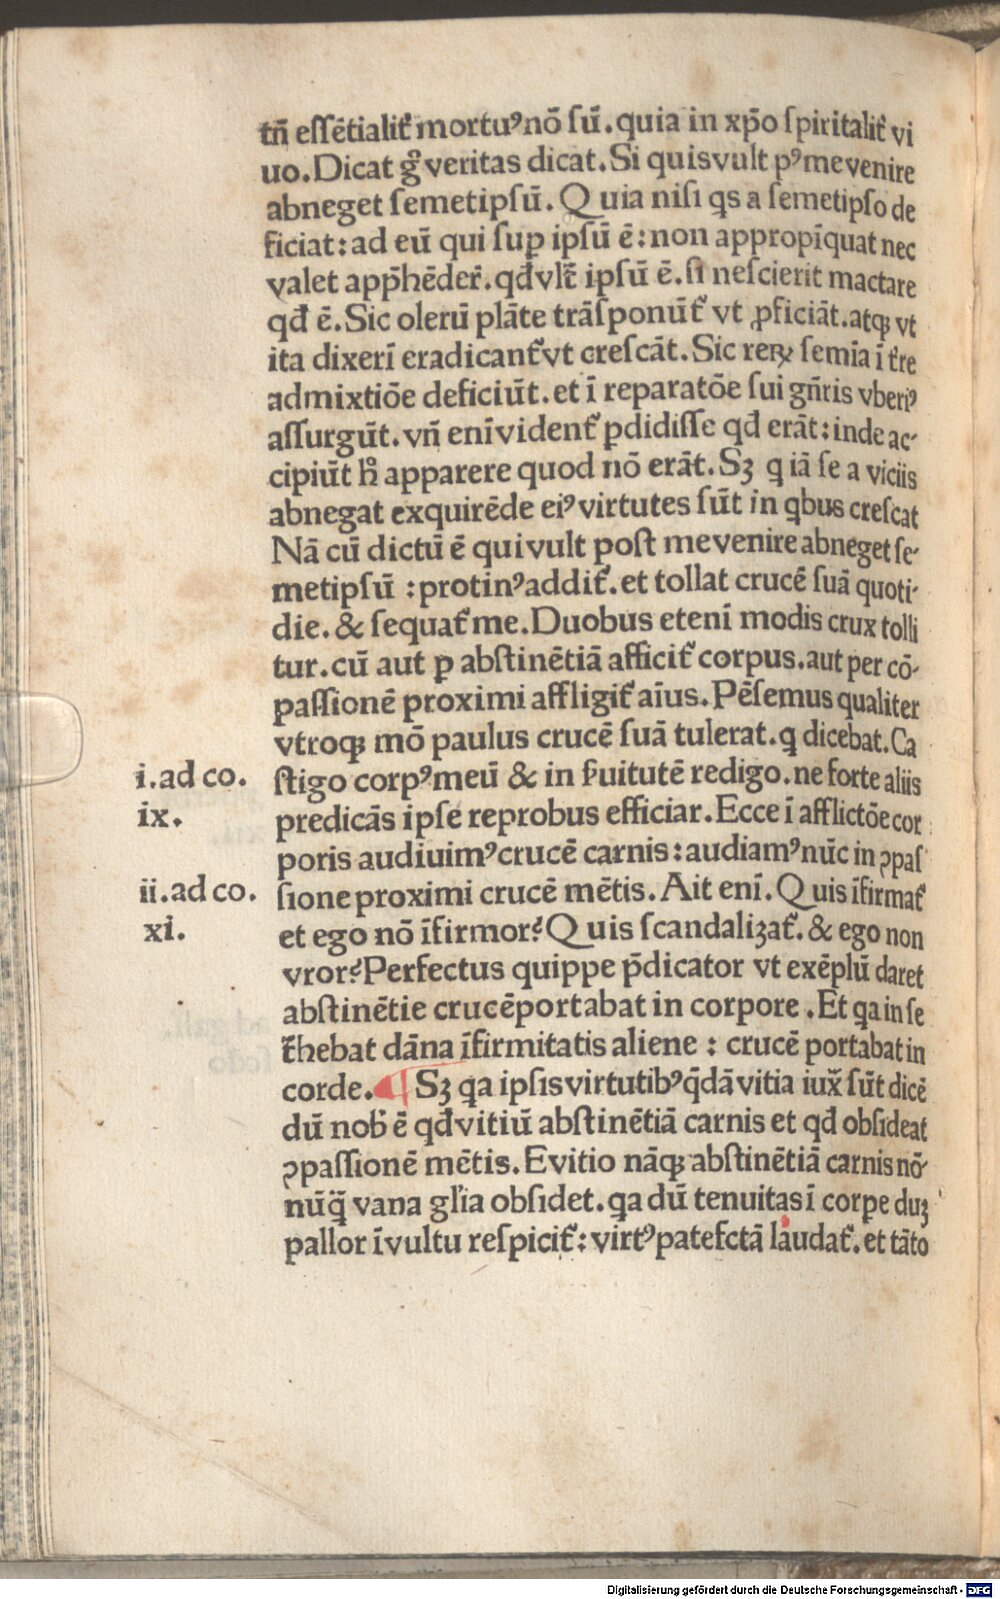 tñ eſſētialit᷑ mortuꝰ nō ſū. quia in xp̄o ſpiritalit᷑ vi
uo. Dicat gͦ veritas dicat. Si quis vult pꝰ me venire
abneget ſemetipſū. Quia niſi qs a ſemetipſo de
ficiat: ad eū qui ſuꝑ ipſū ē: non appropīquat nec
valet app̄hēder̄. qđ vlt᷑ ipſū ē. ſi neſcierit mactare
qđ ē. Sic olerū plāte trāſponūt᷑ vt ꝓficiāt. atqꝫ vt
ita dixerī eradicant᷑ vt creſcāt. Sic reꝝ ſemīa ī t᷑re
admixtiōe deficiūt. et ī reparatōe ſui gn̄ris vberiꝰ
aſſurgūt. vñ enī vident᷑ ꝑdidiſſe qđ erāt: inde ac-
cipiūt hͦ apparere quod nō erāt. Sꝫ q iā ſe a viciis
abnegat exquirēde eiꝰ virtutes ſūt in qbus creſcat
Nā cū dictū ē qui vult poſt me venire abneget ſe-
metipſū : protinꝰ addit᷑. et tollat crucē ſuā quoti-
die. & ſequat᷑ me. Duobus etenī modis crux tolli
tur. cū aut ꝑ abſtinētiā afficit᷑ corpus. aut per cō-
paſſionē proximi affligit᷑ aīus. Pēſemus qualiter
vtroqꝫ mō paulus crucē ſuā tulerat. q dicebat. Ca
i. ad co. ſtigo corpꝰ meū & in ẜuitutē redigo. ne forte aliis
ix. predicās ipſe reprobus efficiar. Ecce ī afflictōe cor
poris audiuimꝰ crucē carnis: audiamꝰ nūc in ꝯpaſ
ii. ad co. ſione proximi crucē mētis. Ait enī. Quis īfirmat᷑
xi. et ego nō īfirmor? Quis ſcandalizat᷑. & ego non
vror? Perfectus quippe p̄dicator vt exēplū daret
abſtinētie crucē portabat in corpore. Et qa in ſe
t᷑hebat dāna īfirmitatis aliene : crucē portabat in
corde. Sꝫ qa ipſis virtutibꝰ q̄dā vitia iux̄ ſūt dicē
dū nob̄ ē qđ vitiū abſtinētiā carnis et qđ obſideat
ꝯpaſſionē mētis. E vitio nāqꝫ abſtinētiā carnis nō-
nūq̄ vana gl̄ia obſidet. qa dū tenuitas ī corꝑe duꝫ
pallor ī vultu reſpicit᷑: virtꝰ patefctā laudat᷑. et tāto